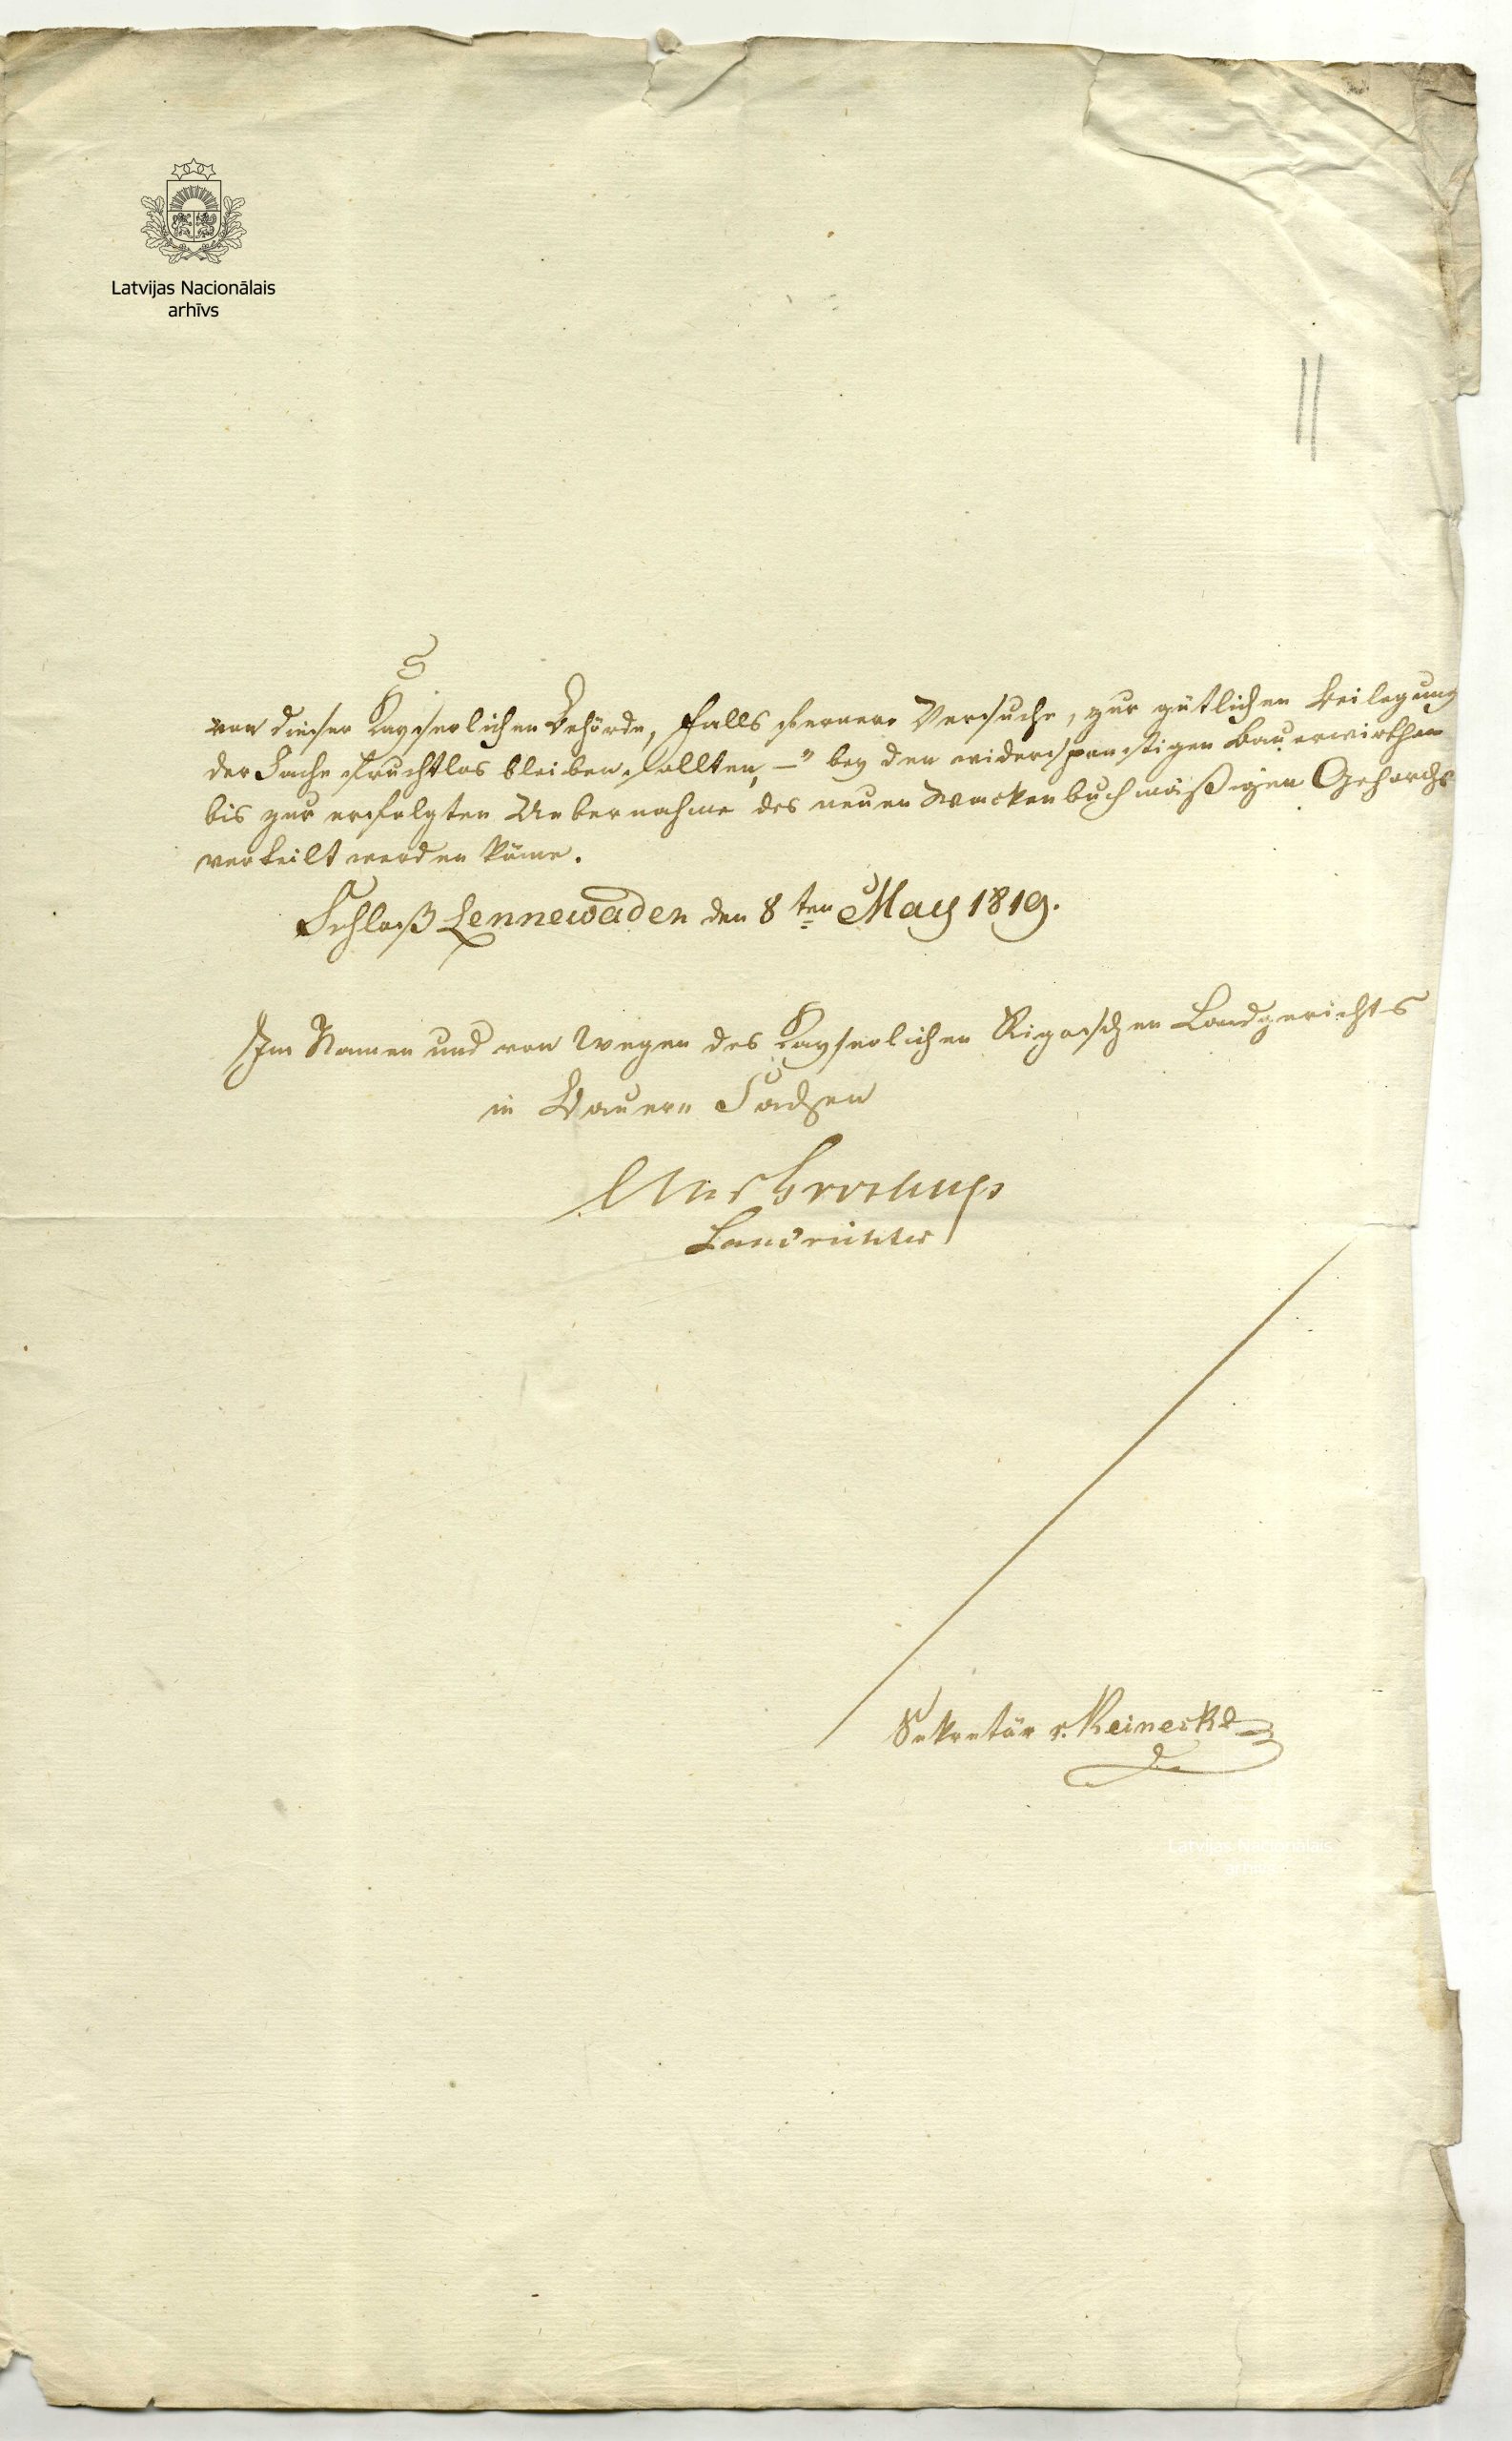 Latvijas Nacionālais
arhīvs
von dieser Kayserlichen Behörde, falls fernere Versuche, zur gütlichen Beilegung
der Sache fruchtlos bleiben sollten, –" bey den widerspenstigen Bauerwirthen
bis zur erfolgten Uebernahme des neuen Wackenbuchmäßigen Gehorchs
verteilt werden könne.
Schloß Lennewaden den 8ten May 1819.
Im Namen und von Wegen des Kayserlichen Rigaschen Landgerichts
in Bauern Sachen
Landrichter
Sekretär v. Reinecke
Latvijas Nacionālais